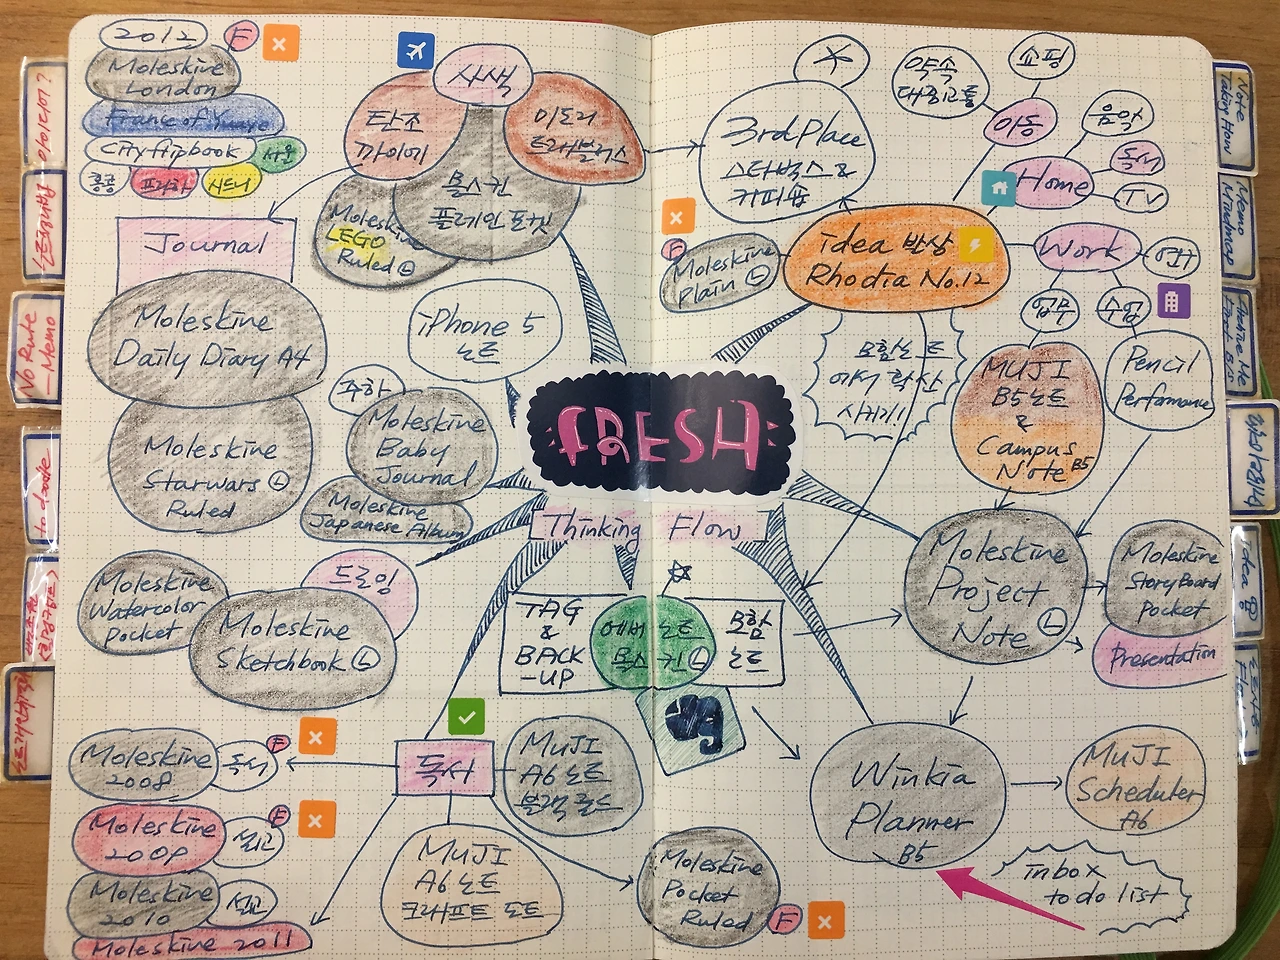 2012
F
Moleskine
London
France of Yujae
Cityflipbook
서울
홍콩
프라하
시드니
사색
탄조
까이에
미도리
트래블러스
몰스킨
플레인 포켓
Moleskine
LEGO
Ruled L
Journal
Moleskine
Daily Diary A4
iPhone 5
노트
Moleskine
Starwars L
Ruled
Moleskine
Baby
Journal
Moleskine
Japanese Album
드로잉
Moleskine
Watercolor
Pocket
Moleskine
Sketchbook L
FRESH
Thinking Flow
TAG
&
BACK
-UP
에버노트
몰스킨 L
모함
노트
독서
Moleskine
2008
독서
F
Moleskine
2009
설교
F
Moleskine
2010
설교
Moleskine 2011
MUJI
A6 노트
MUJI
A6 노트
크래프트 도트
Moleskine
Pocket
Ruled
F
3rd Place
스타벅스 &
커피숍
약속
대중교통
쇼핑
이동
음악
독서
TV
Home
idea 발상
Rhodia No.12
F
Moleskine
Plain L
Work
업무
수업
모함노트
에서 확산
시키기!!
MUJI
B5 노트
&
Campus
Note B5
Pencil
Performance
Moleskine
Project
Note L
Moleskine
StoryBoard
pocket
Presentation
Winkia
Planner
B5
MUJI
Scheduler
A6
inbox
to do list
아이디어?
No Rule
-Memo
to doodle
Note
Taking How
Memo
Mindmap
idea